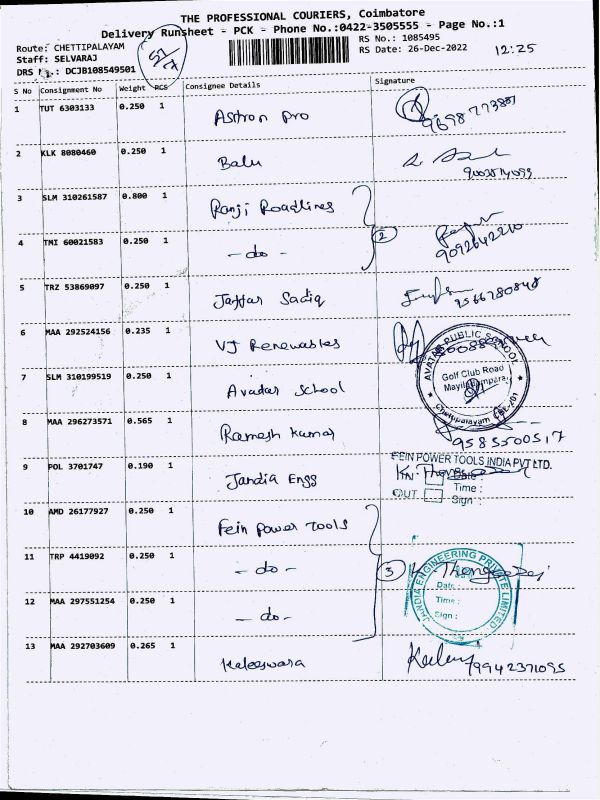 THE PROFESSIONAL COURIERS, Coimbatore
Delivery Runsheet - PCK - Phone No.:0422-3505555 - Page No.:1
Route: CHETTIPALAYAM
Staff: SELVARAJ
DRS : DCJB108549501
RS No.: 1085495
RS Date: 26-Dec-2022
12:25
S No Consignment No Weight PCS Consignee Details Signature
1 TUT 6303133 0.250 1 Astron Pro
2 KLK 8080460 0.250 1 Balu
3 SLM 310261587 0.800 1 Ranji Roadlines
4 TMI 60021583 0.250 1 - do - 2 9092642210
5 TRZ 53869097 0.250 1 Jaffar Sadiq 9566780848
6 MAA 292524156 0.235 1 VJ Renewables
7 SLM 310199519 0.250 1 Avadar School
AVATAR PUBLIC SCHOOL
Golf Club Road
Chettipalayam
8 MAA 296273571 0.565 1 Ramesh Kumar 9585500517
9 POL 3701747 0.190 1 Jandia Engg
FEIN POWER TOOLS INDIA PVT LTD.
Date
Time :
OUT Sign :
10 AMD 26177927 0.250 1 Fein Power Tools
11 TRP 4419092 0.250 1 - do - 3
JANDIA ENGINEERING PRIVATE LIMITED
Date:
Time :
Sign :
12 MAA 297551254 0.250 1 - do -
13 MAA 292703609 0.265 1 Kaleeswara 9942371095